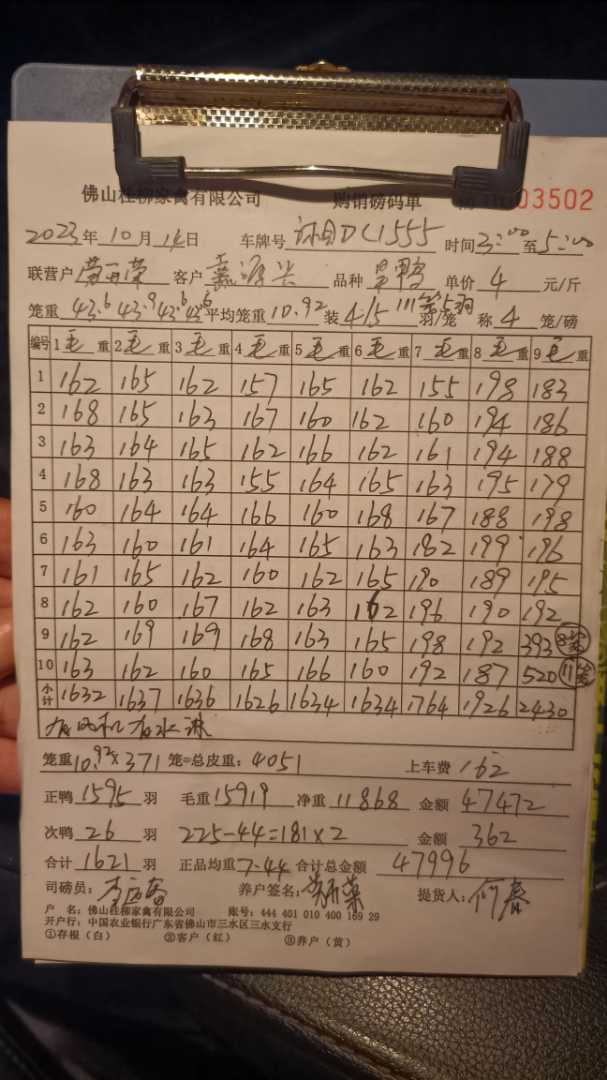 佛山桂柳家禽有限公司 购销磅码单 03502
2023年10月14日 车牌号 DC1555 时间3:00至5:00
联营户 客户 品种 鸭 单价 4 元/斤
笼重 43.6 43.9 43.6 43.6 平均笼重 10.92 装 4/15 羽/笼 称 4 笼/磅
编号 1毛重 2毛重 3毛重 4毛重 5毛重 6毛重 7毛重 8毛重 9毛重
1 162 165 162 157 165 162 155 198 183
2 168 165 163 167 160 162 160 194 186
3 163 164 165 162 166 162 161 194 188
4 168 163 163 155 164 165 163 195 179
5 160 164 164 166 160 168 167 188 198
6 163 160 161 164 165 163 182 199 196
7 161 165 162 160 162 165 190 189 195
8 162 160 167 162 163 162 196 190 192
9 162 169 169 168 163 165 198 192 393 8笼
10 163 162 160 165 166 160 192 187 520 11笼
小计 1632 1637 1636 1626 1634 1634 1764 1926 2430
有风机有水淋
笼重10.92×371笼=总皮重：4051 上车费 162
正鸭 1595 羽 毛重 15919 净重 11868 金额 47472
次鸭 26 羽 225-44=181×2 金额 362
合计 1621 羽 正品均重 7.44 合计总金额 47996
司磅员： 养户签名： 提货人：何春
户 名：佛山桂柳家禽有限公司 账号：444 401 010 400 169 29
开户行：中国农业银行广东省佛山市三水区三水支行
①存根（白） ②客户（红） ③养户（黄）